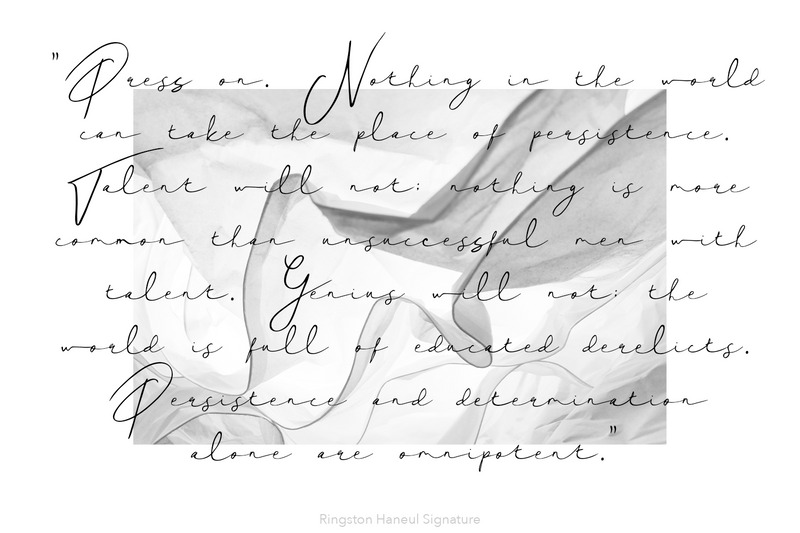 "Press on. Nothing in the world
can take the place of persistence.
Talent will not: nothing is more
common than unsuccessful men with
talent. Genius will not: the
world is full of educated derelicts.
Persistence and determination
alone are omnipotent."
Ringston Haneul Signature